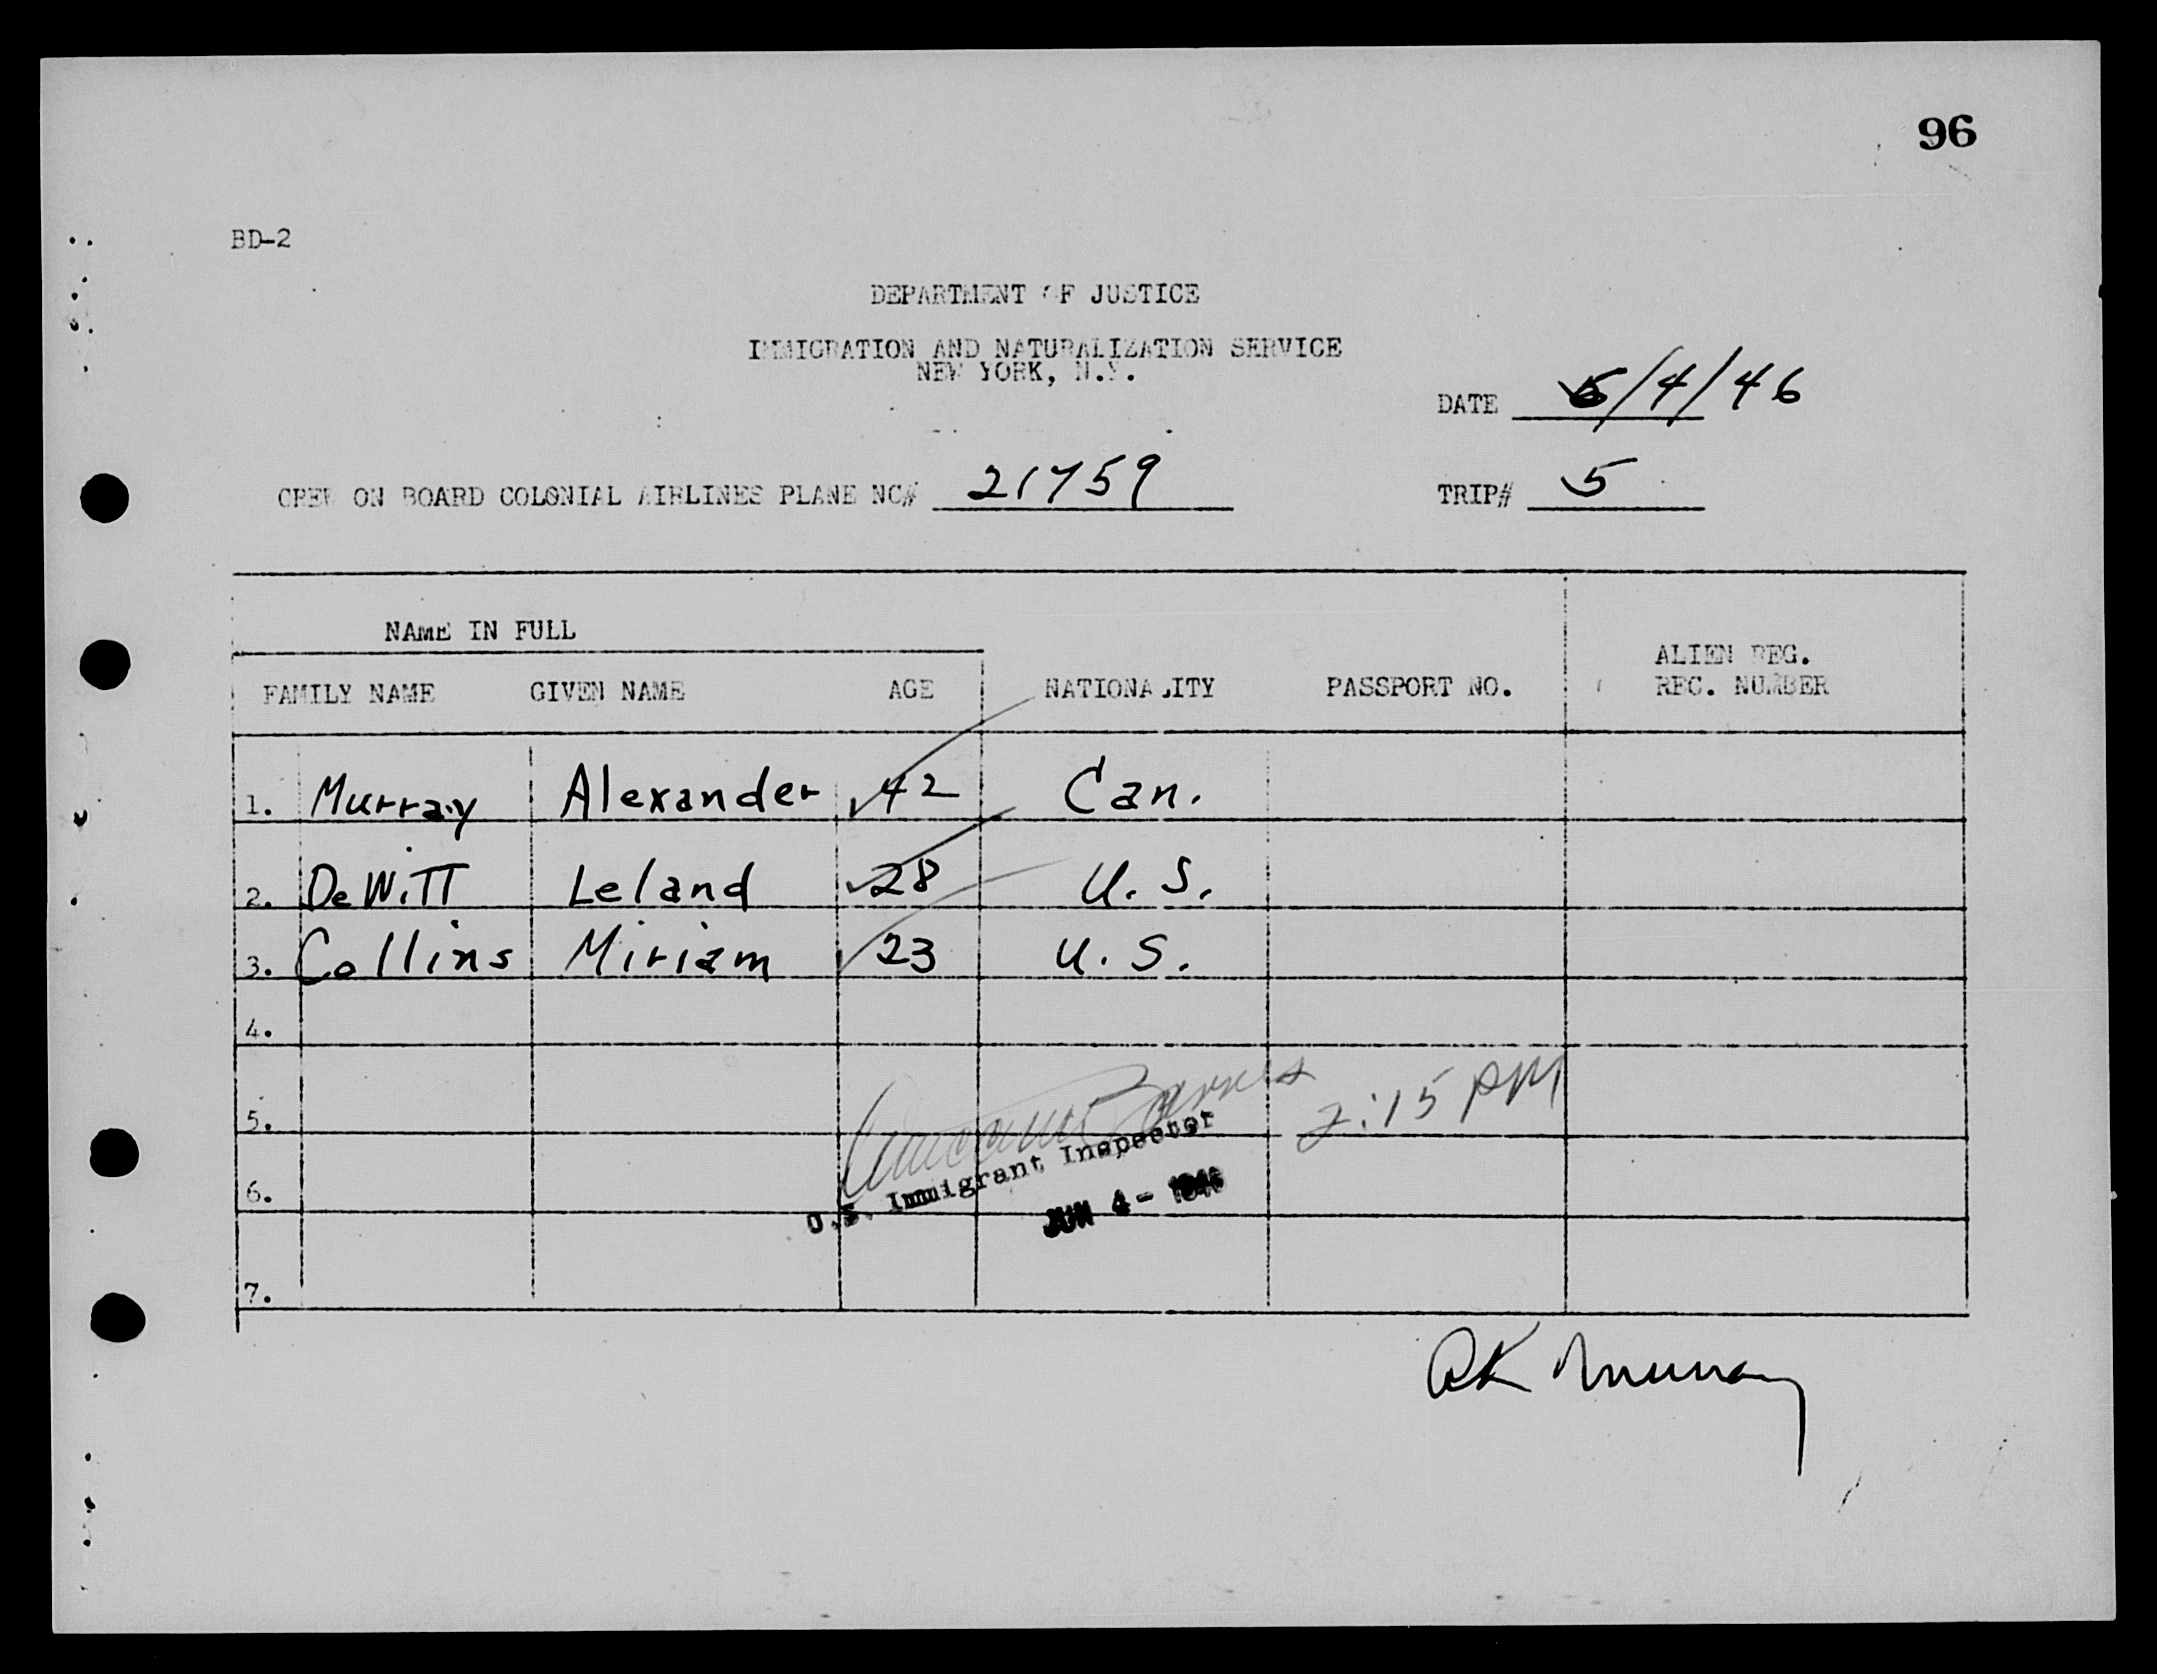 96
BD-2
DEPARTMENT OF JUSTICE
IMMIGRATION AND NATURALIZATION SERVICE
NEW YORK, N.Y.
DATE 6/4/46
CREW ON BOARD COLONIAL AIRLINES PLANE NC# 21759
TRIP# 5
NAME IN FULL
FAMILY NAME GIVEN NAME AGE NATIONALITY PASSPORT NO. ALIEN REG. REC. NUMBER
1. Murray Alexander 42 Can.
2. DeWitt Leland 28 U.S.
3. Collins Miriam 23 U.S.
4.
5.
6.
7.
Barnes 2:15 PM
U.S. Immigrant Inspector
JUN 4 - 1946
AK Murray